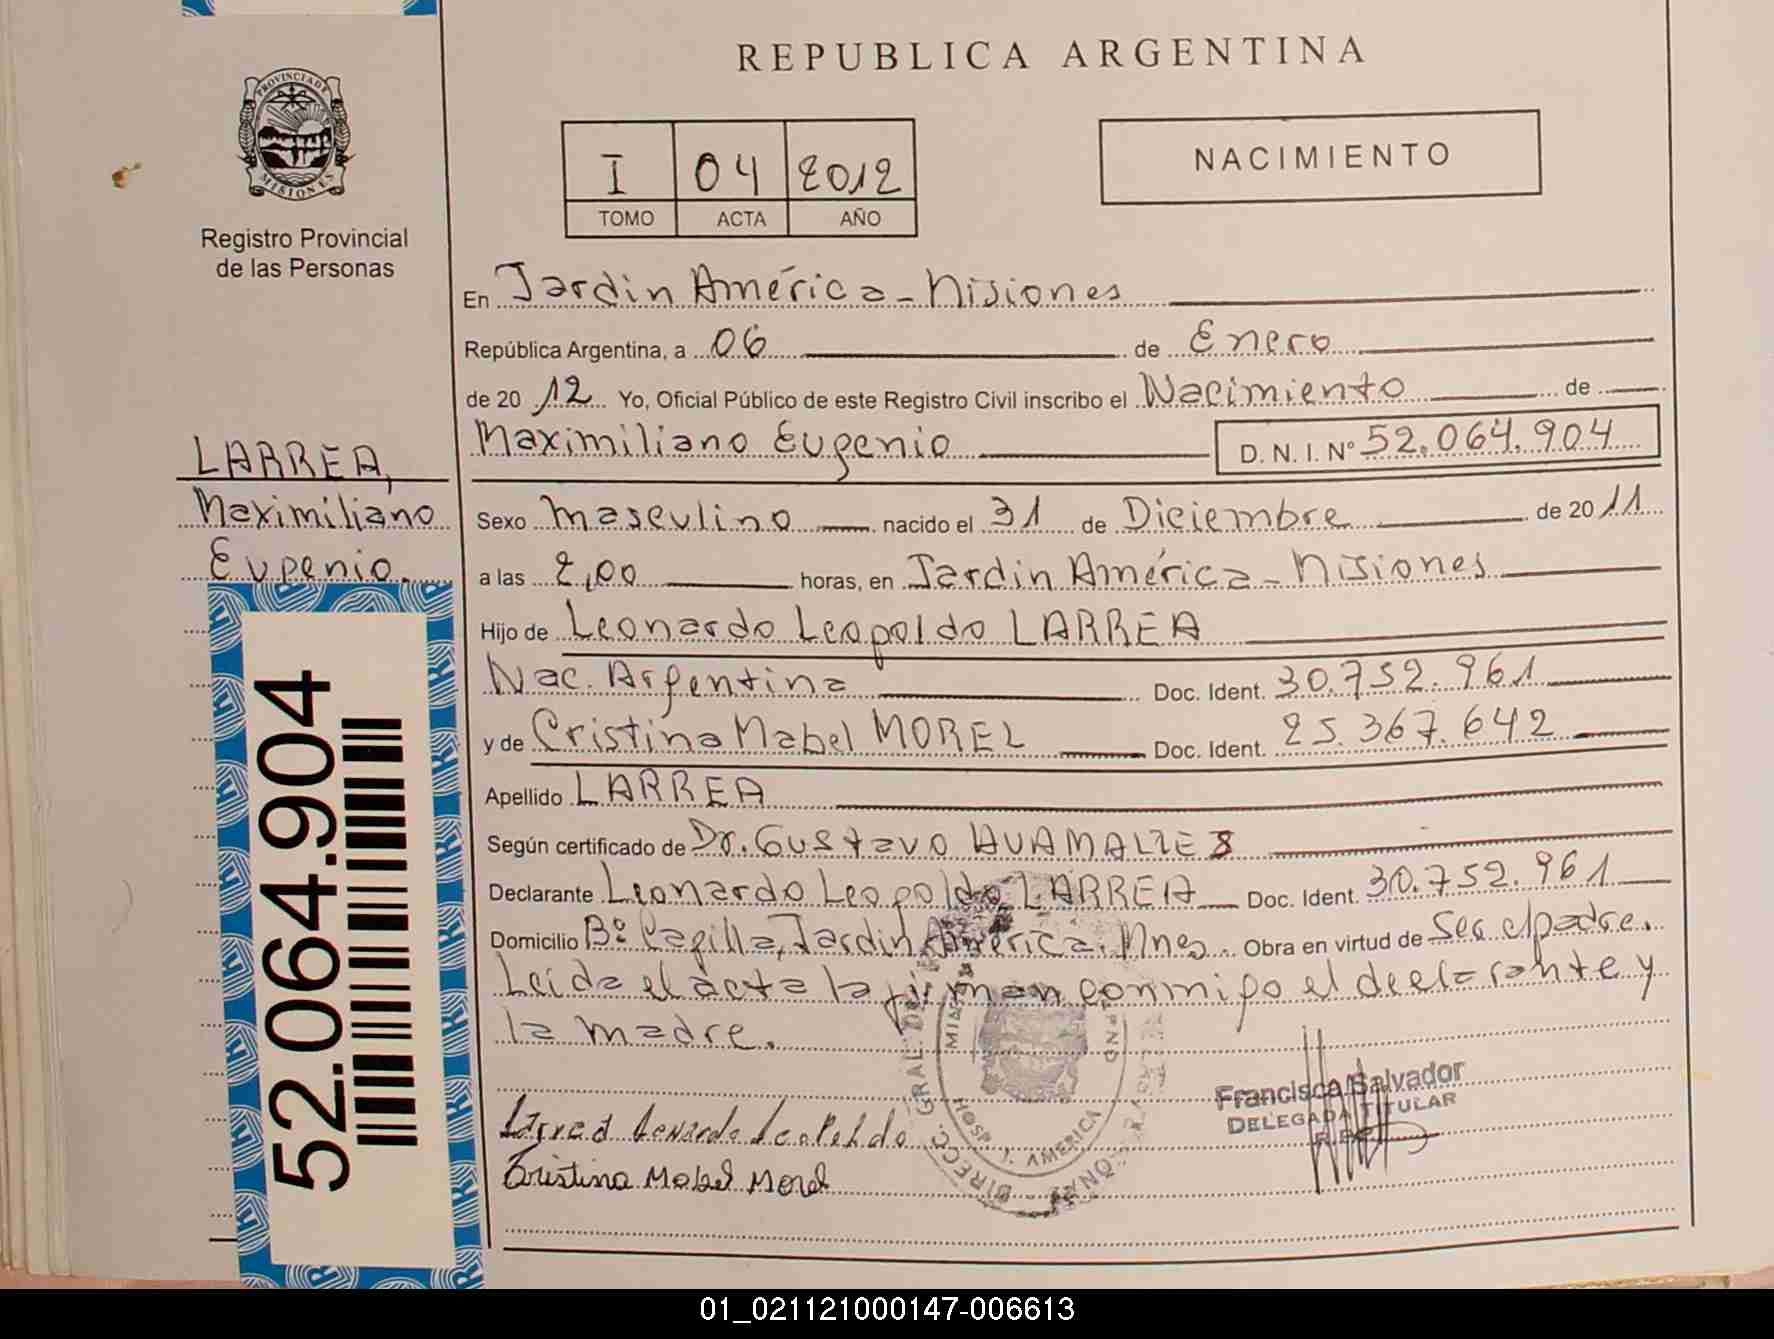 REPUBLICA ARGENTINA
PROVINCIA DE MISIONES
Registro Provincial
de las Personas
I 04 2012
TOMO ACTA AÑO
NACIMIENTO
En Jardin América - Misiones
República Argentina, a 06 de Enero
de 2012 Yo, Oficial Público de este Registro Civil inscribo el Nacimiento de
Maximiliano Eugenio D. N. I. Nº 52.064.904
LARREA,
Maximiliano
Eugenio.
Sexo Masculino nacido el 31 de Diciembre de 2011
a las 2,00 horas, en Jardin América - Misiones
Hijo de Leonardo Leopoldo LARREA
Nac. Argentina Doc. Ident. 30.752.961
y de Cristina Mabel MOREL Doc. Ident. 25.367.642
Apellido LARREA
Según certificado de Dr. Gustavo
Declarante Leonardo Leopoldo LARREA Doc. Ident. 30.752.961
Domicilio Bº Capilla, Jardin América. Mnes. Obra en virtud de Ser el padre.
Leida el acta la firman conmigo el declarante y
la madre.
Larrea Leonardo Leopoldo
Cristina Mabel Morel
Francisca Salvador
DELEGADA TITULAR
52.064.904
01_021121000147-006613